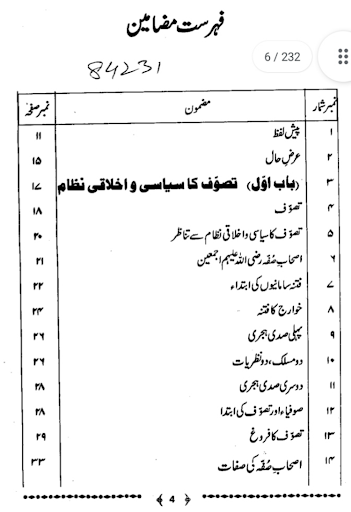 فہرست مضامین
6 / 232
84231
نمبر شمار مضمون نمبر صفحہ
۱ پیش لفظ ۱۱
۲ عرض حال ۱۵
۳ (باب اوّل) تصوّف کا سیاسی و اخلاقی نظام ۱۷
۴ تصوّف ۱۸
۵ تصوّف کا سیاسی و اخلاقی نظام سے تناظر ۲۰
۶ اصحابِ صُفّہ رضی اللہ علیہم اجمعین ۲۱
۷ فتنہ سامانیوں کی ابتداء ۲۲
۸ خوارج کا فتنہ ۲۴
۹ پہلی صدی ہجری ۲۶
۱۰ دو مسلک، دو نظریات ۲۶
۱۱ دوسری صدی ہجری ۲۸
۱۲ صوفیاء اور تصوّف کی ابتدا ۲۸
۱۳ تصوّف کا فروغ ۲۹
۱۴ اصحابِ صُفّہ کی صفات ۳۳
4